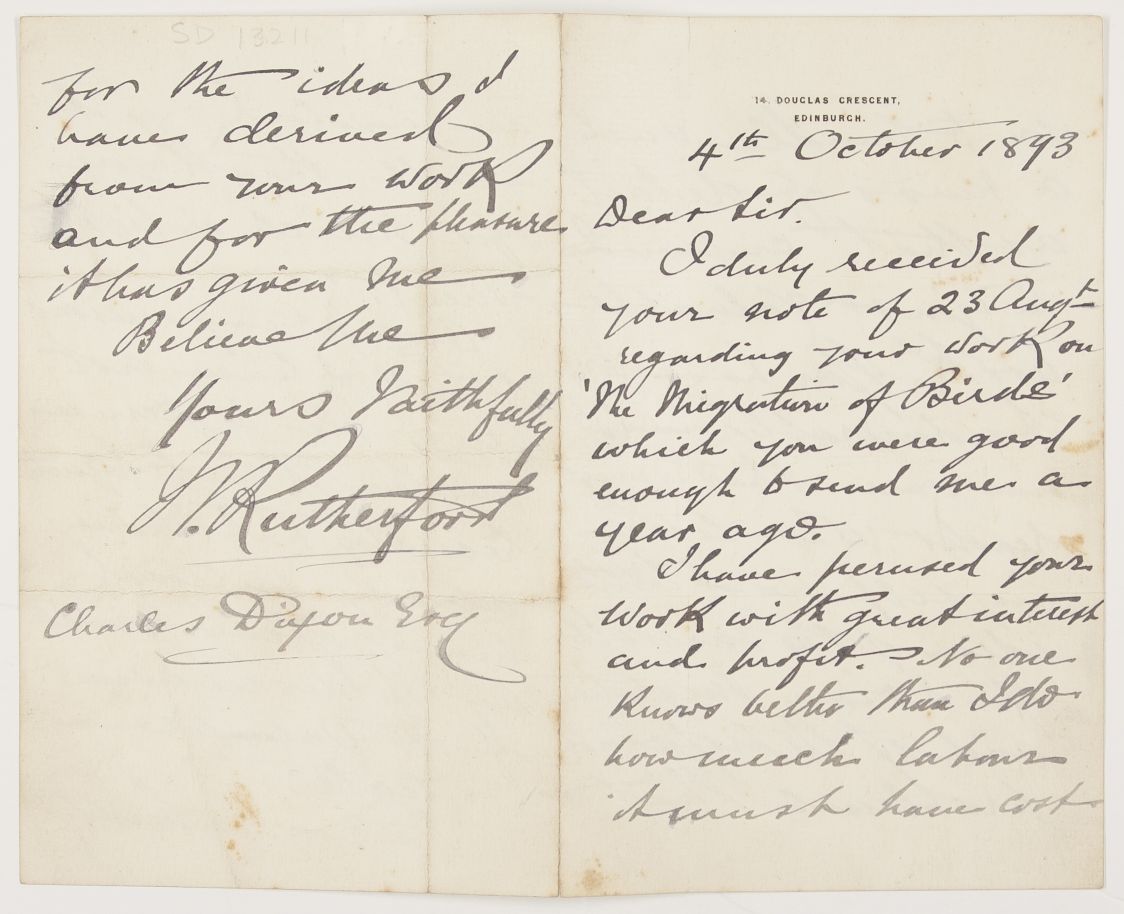 14. DOUGLAS CRESCENT,
EDINBURGH.
4th October 1893
Dear Sir.
I duly received
your note of 23 Augt
regarding your work on
'The Migration of Birds'
which you were good
enough to send me a
year ago.
I have perused your
work with great interest
and profit. No one
knows better than I do
how much labour
it must have cost
SD 13211
for the ideas I
have derived
from your work
and for the pleasure
it has given me
Believe Me
Yours Faithfully
W. Rutherford
Charles Dixon Esq